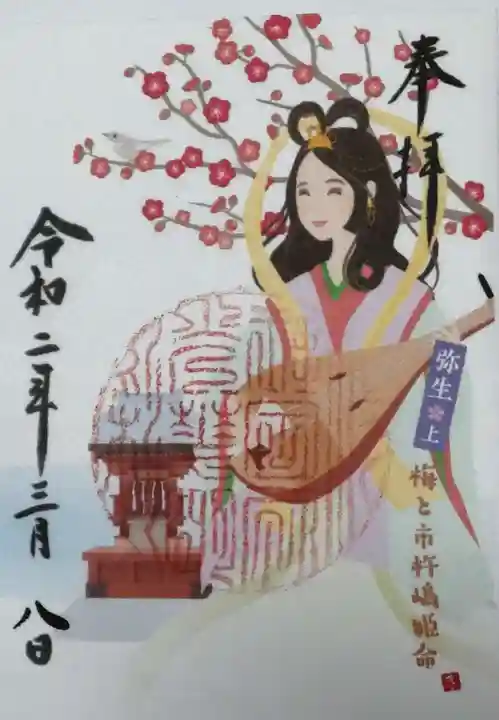 奉拝
弥生 上
梅と市杵嶋姫命
令和二年三月八日